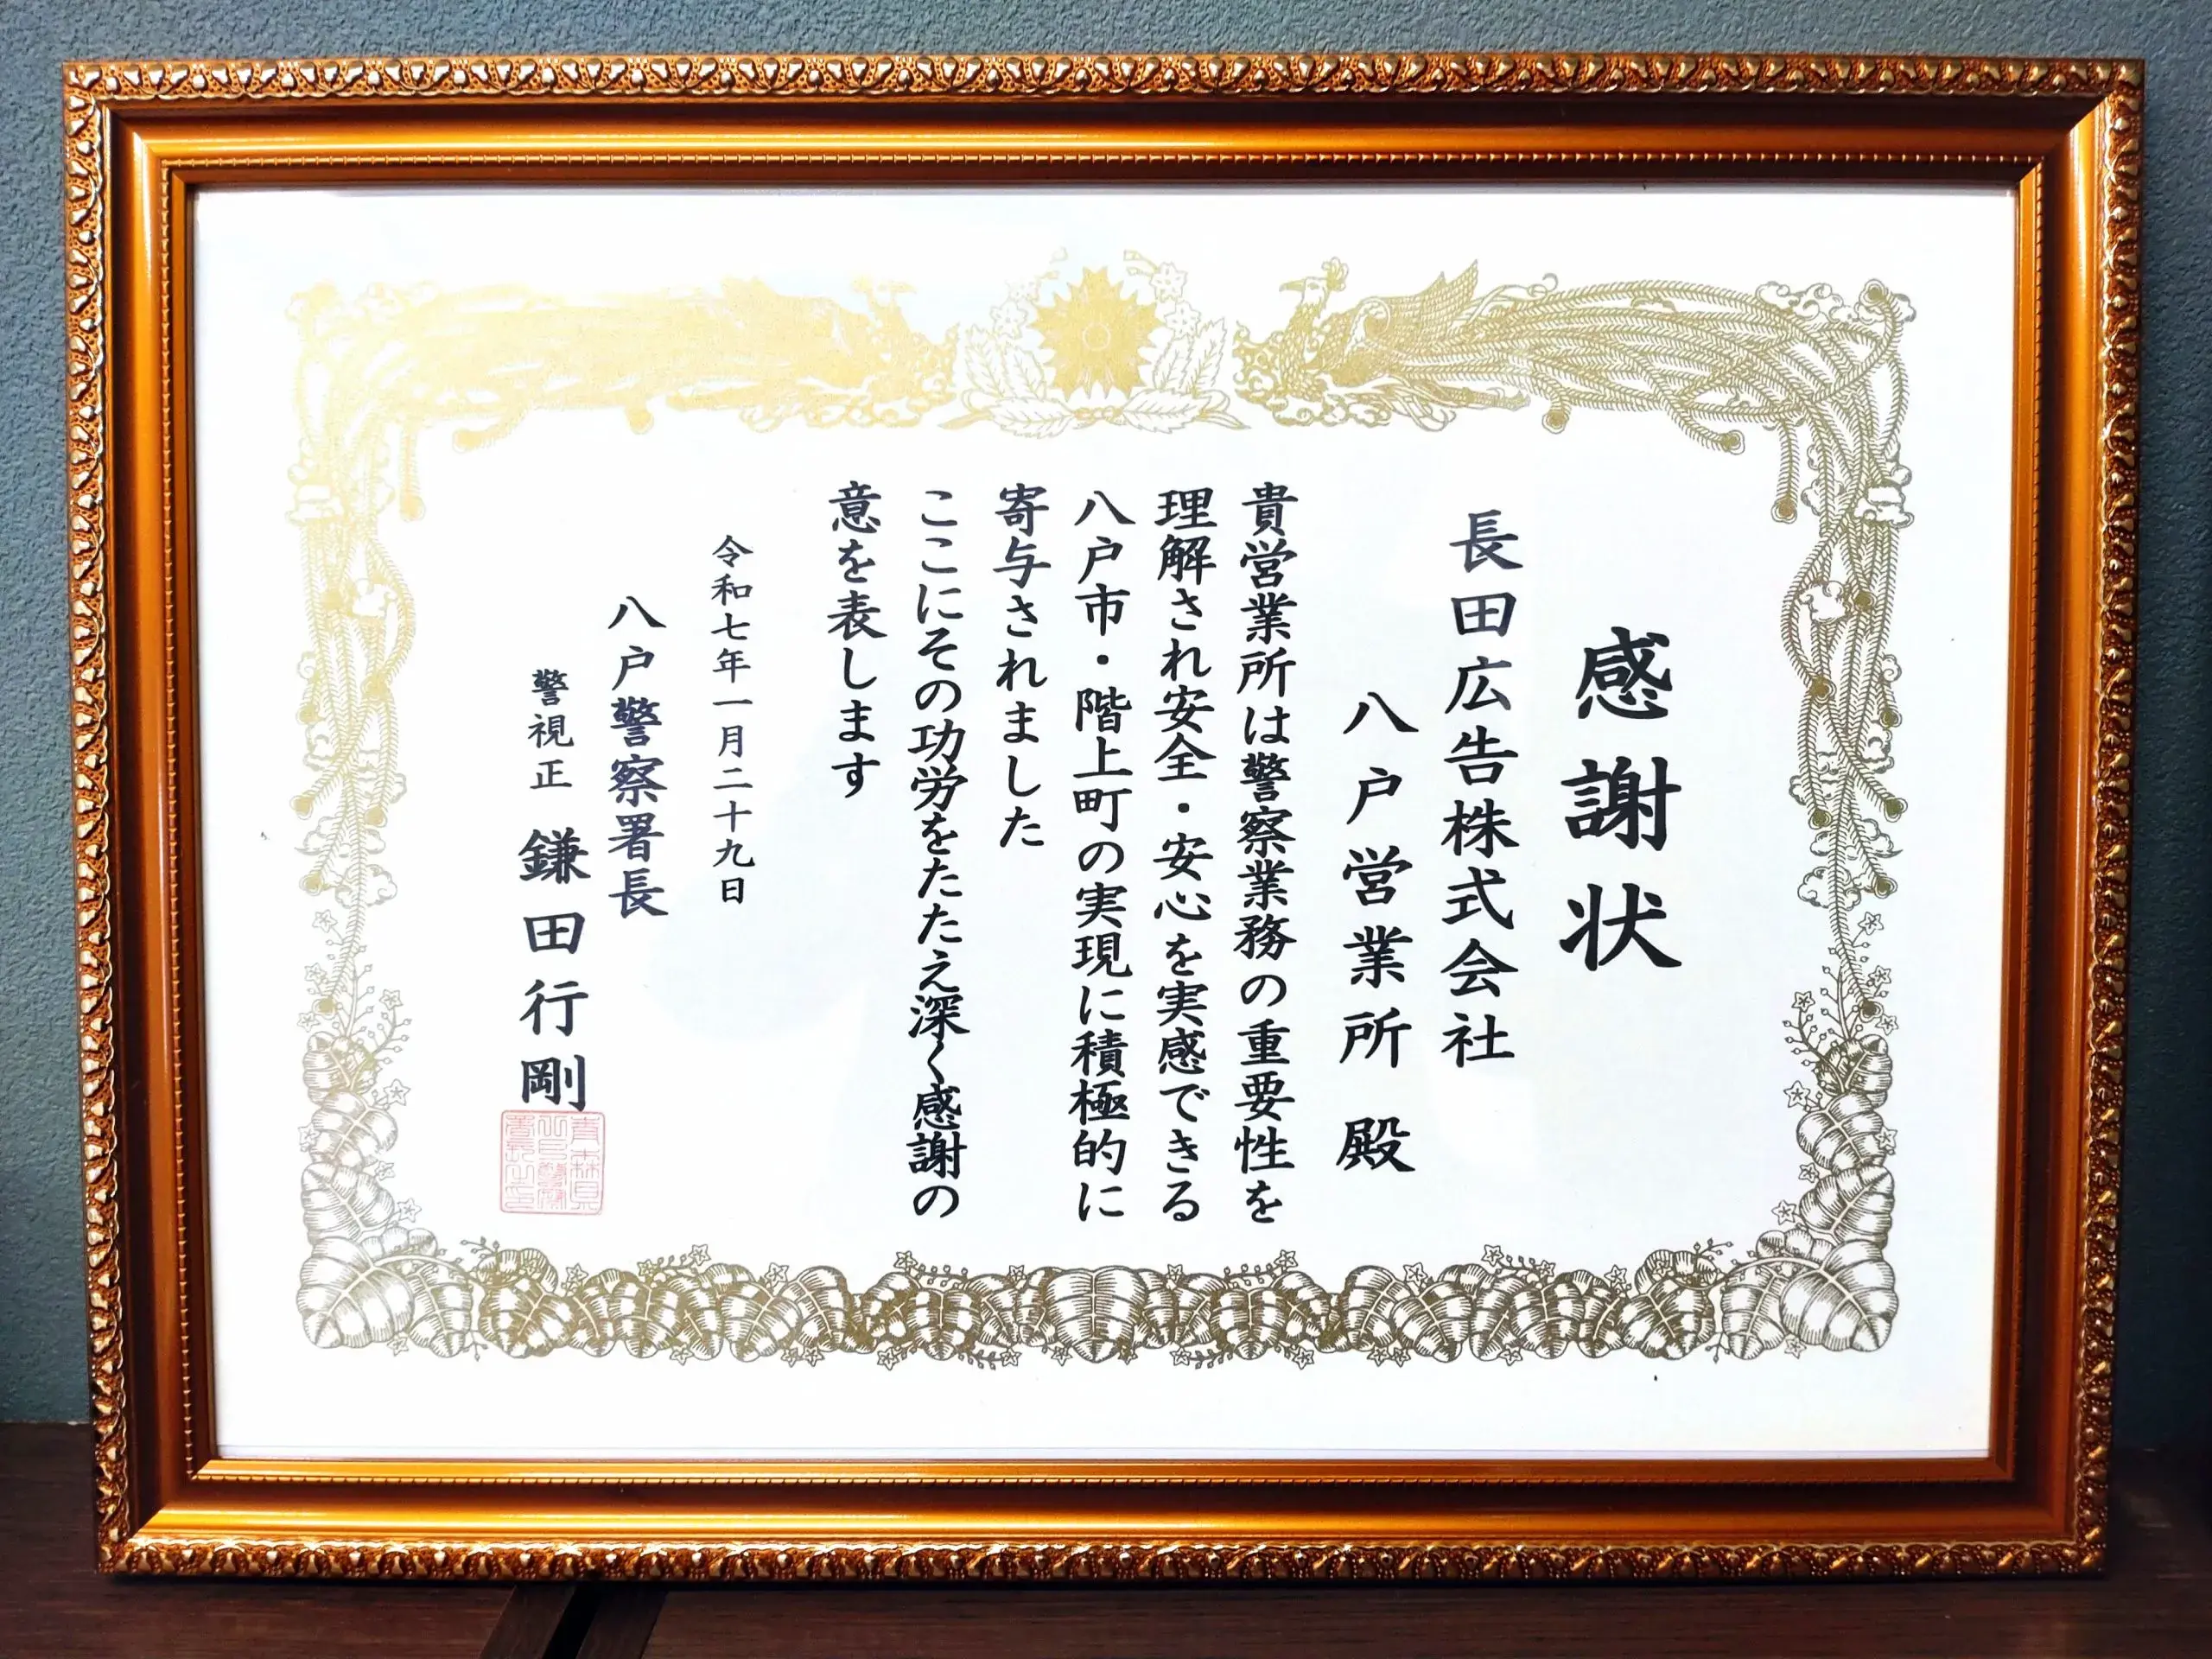 感謝状
長田広告株式会社
八戸営業所 殿
貴営業所は警察業務の重要性を
理解され安全・安心を実感できる
八戸市・階上町の実現に積極的に
寄与されました
ここにその功労をたたえ深く感謝の
意を表します
令和七年一月二十九日
八戸警察署長
警視正 鎌田行剛
青森県
八戸警察
署長之印